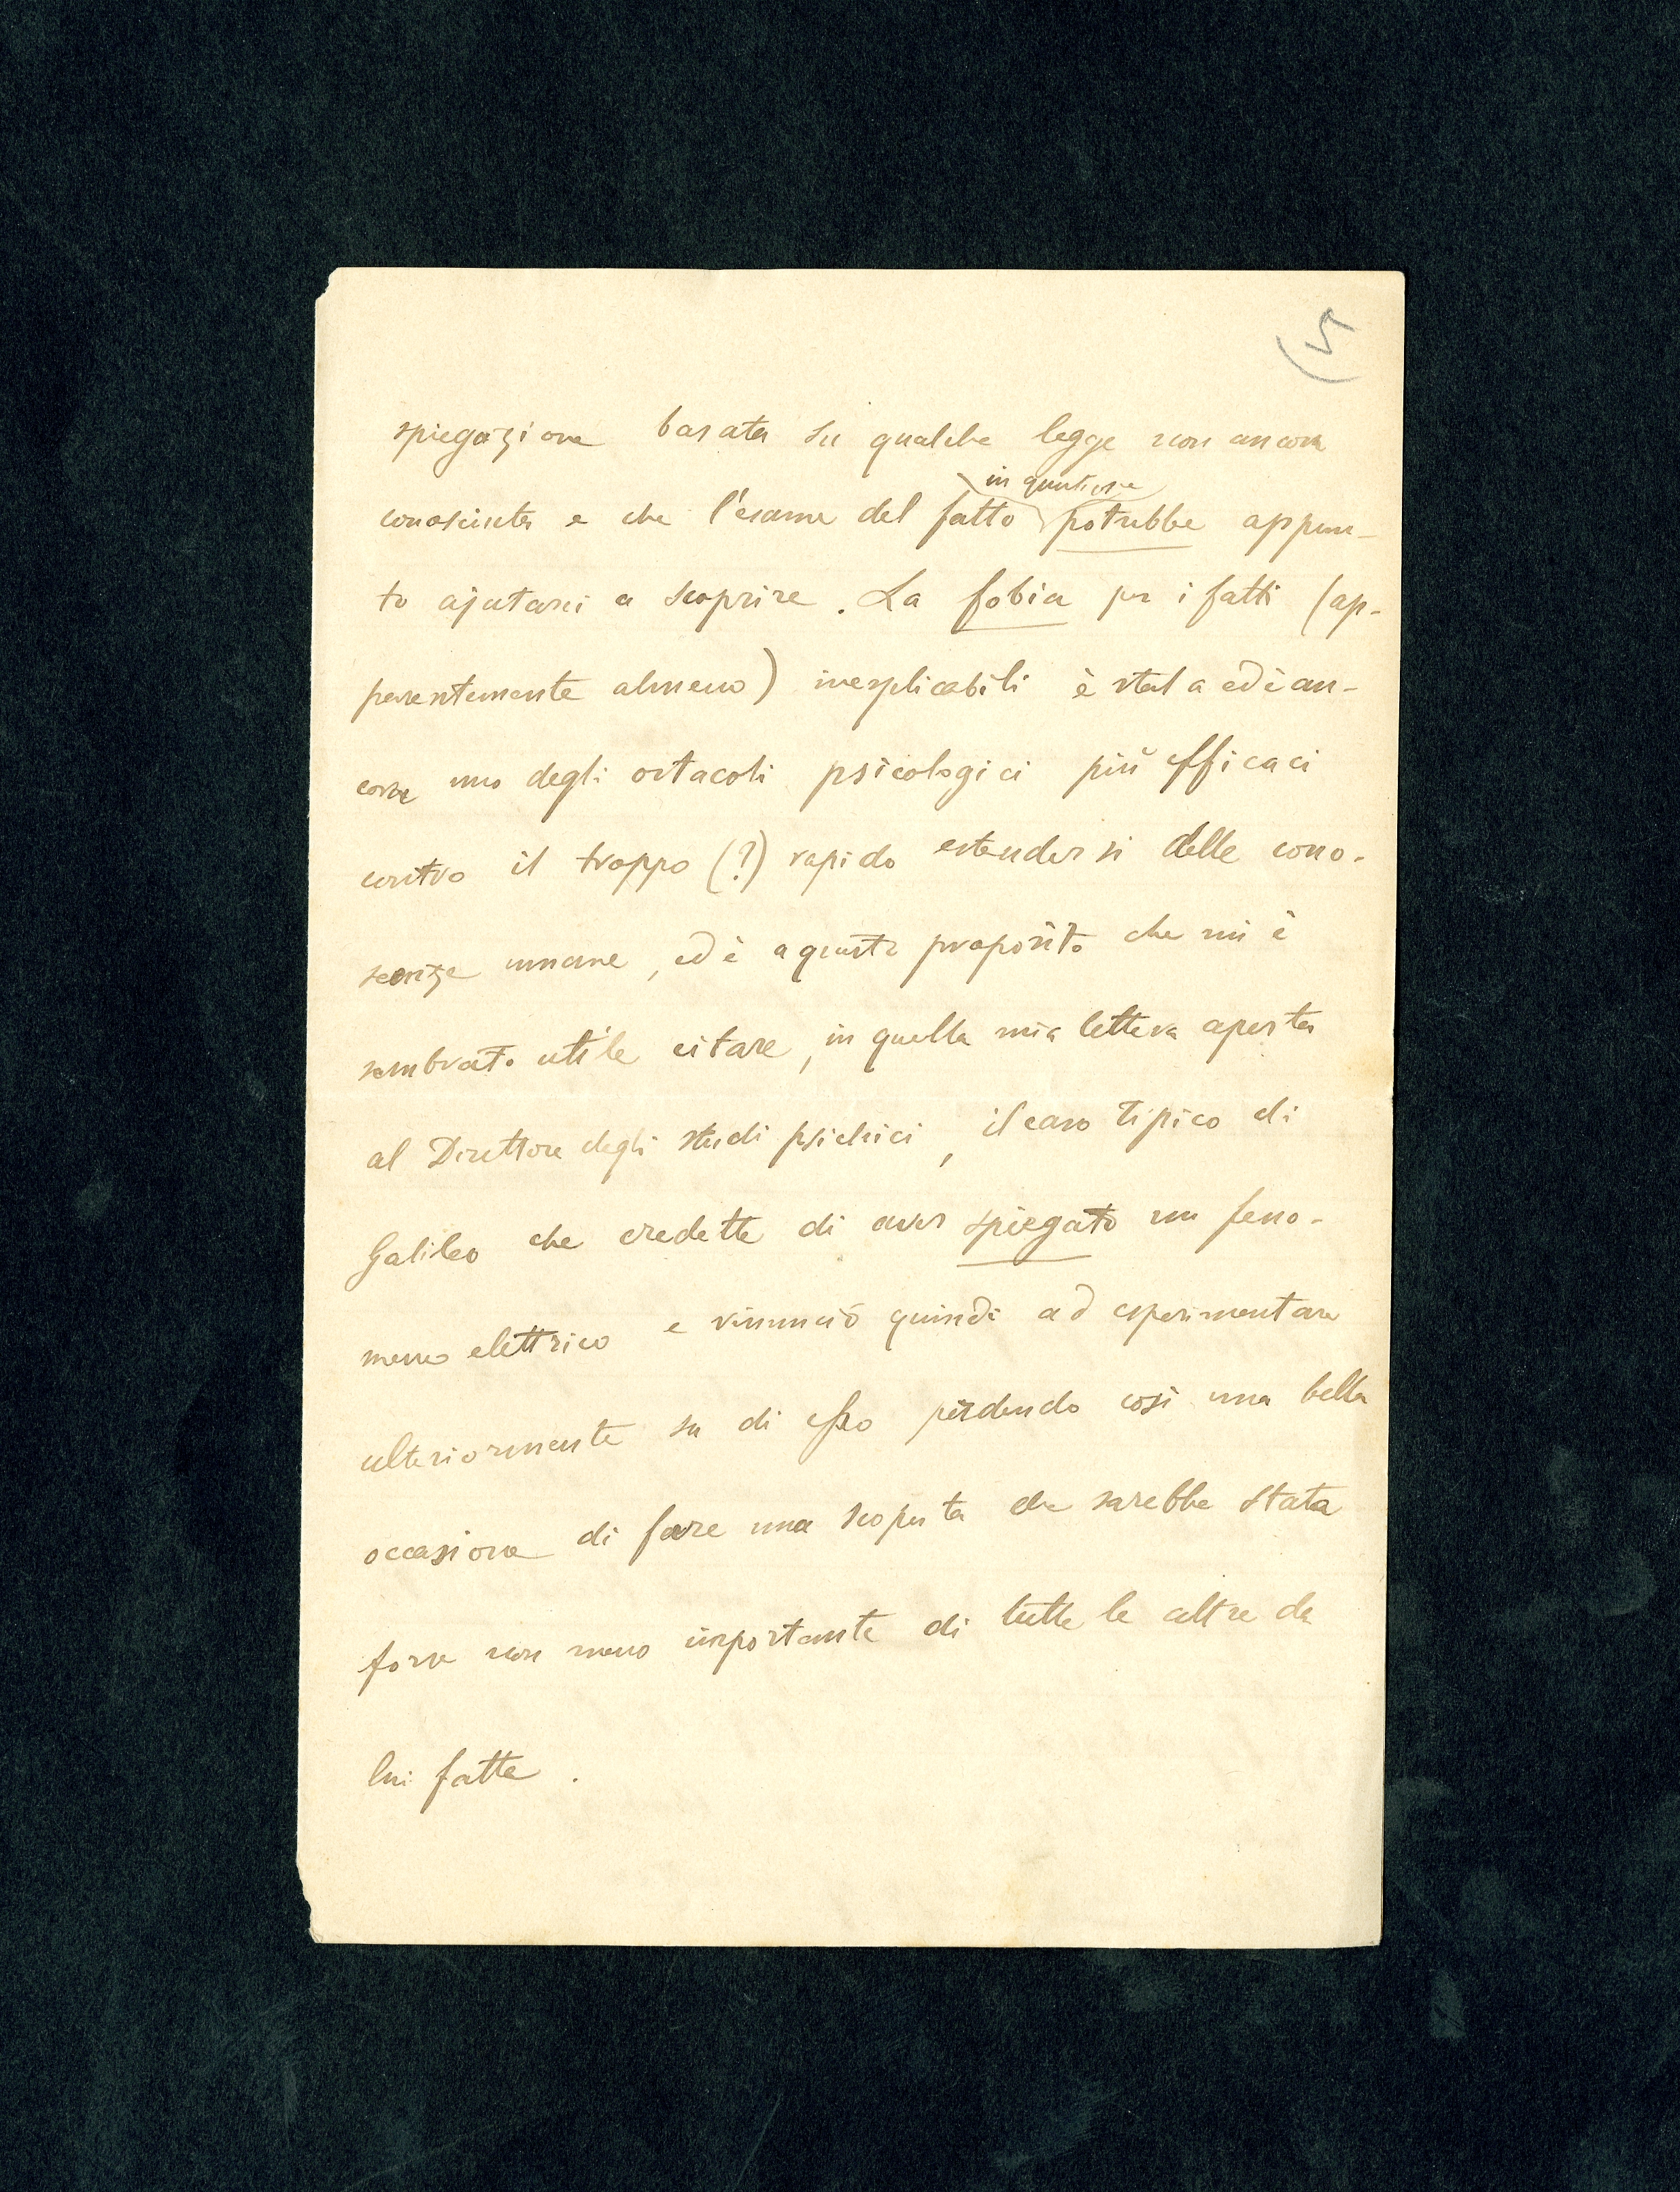 5
spiegazione basata su qualche legge non ancora
in questione
conosciuta e che l'esame del fatto potrebbe appun-
to ajutarci a scoprire. La fobia per i fatti (ap-
parentemente almeno) inesplicabili è stata ed è an-
cora uno degli ostacoli psicologici più efficaci
contro il troppo (?) rapido estendersi delle cono-
scenze umane, ed è a questo proposito che mi è
sembrato utile citare, in quella mia lettera aperta
al Direttore degli studi psichici, il caso tipico di
Galileo che credette di aver spiegato un feno-
meno elettrico e rinunciò quindi ad esperimentare
ulteriormente su di esso perdendo così una bella
occasione di fare una scoperta che sarebbe stata
forse non meno importante di tutte le altre da
lui fatte.